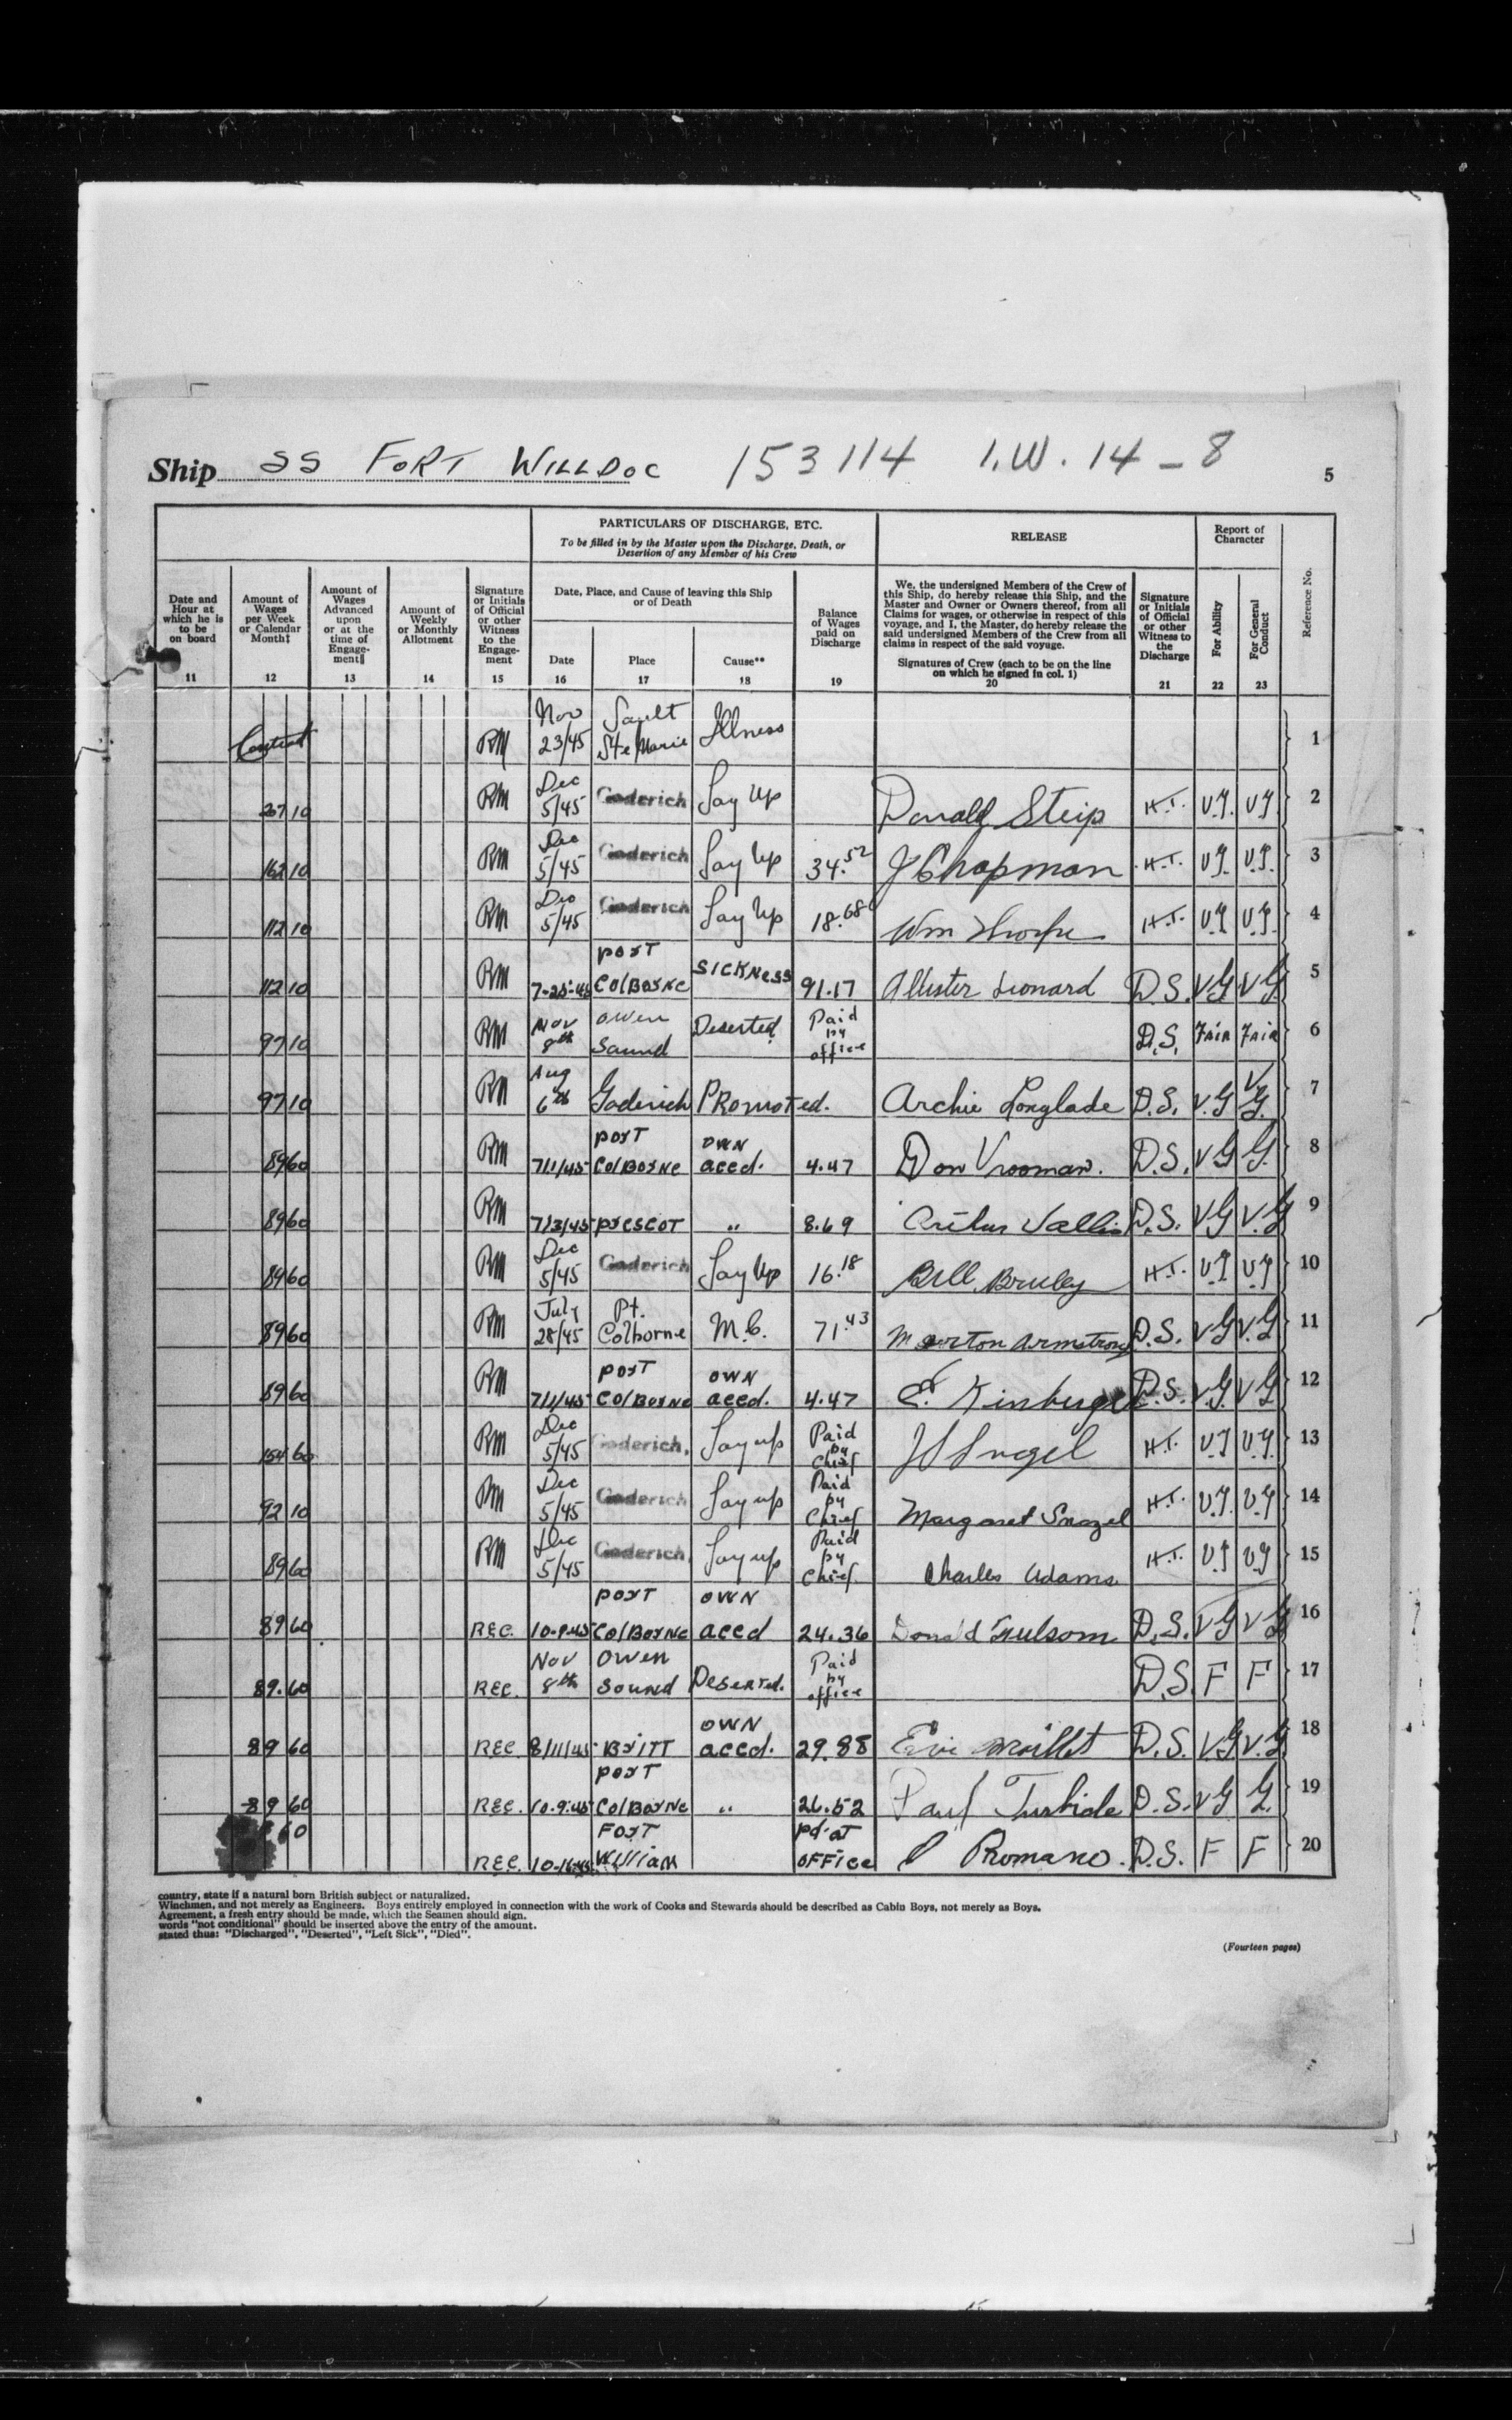 Ship SS FORT WILLDOC 153114 I.W. 14-8 5
PARTICULARS OF DISCHARGE, ETC.
To be filled in by the Master upon the Discharge, Death, or
Desertion of any Member of his Crew
RELEASE
Report of
Character
Reference No.
Date and
Hour at
which he is
to be
on board
11
Amount of
Wages
per Week
or Calendar
Month‡
12
Amount of
Wages
Advanced
upon
or at the
time of
Engage-
ment‖
13
Amount of
Weekly
or Monthly
Allotment
14
Signature
or Initials
of Official
or other
Witness
to the
Engage-
ment
15
Date, Place, and Cause of leaving this Ship
or of Death
Date
16
Place
17
Cause**
18
Balance
of Wages
paid on
Discharge
19
We, the undersigned Members of the Crew of
this Ship, do hereby release this Ship, and the
Master and Owner or Owners thereof, from all
Claims for wages, or otherwise in respect of this
voyage, and I, the Master, do hereby release the
said undersigned Members of the Crew from all
claims in respect of the said voyage.
Signatures of Crew (each to be on the line
on which he signed in col. 1)
20
Signature
or Initials
of Official
or other
Witness to
the
Discharge
21
For Ability
22
For General
Conduct
23
Contract RM Nov 23/45 Sault Ste Marie Illness 1
10 RM Dec 5/45 Goderich Lay Up Donald H.T. V.G. V.G. 2
162 10 RM Dec 5/45 Goderich Lay Up 34.52 J Chapman H.T. V.G. V.G. 3
112 10 RM Dec 5/45 Goderich Lay Up 18.68 Wm Thorpe H.T. V.G. V.G. 4
112 10 RM 7-25-45 PORT COLBORNE SICKNESS 91.17 Allister Leonard D.S. V.G V.G. 5
97 10 RM Nov 8th Owen Sound Deserted Paid by office D.S. Fair Fair 6
97 10 RM Aug 6th Goderich Promoted. Archie Longlade D.S. V.G V.G. 7
89 60 RM 7/1/45 PORT COLBORNE OWN aced. 4.47 Don Vrooman. D.S. V.G G. 8
89 60 RM 7/3/45 PRESCOT " 8.69 D.S. V.G V.G 9
89 60 RM Dec 5/45 Goderich Lay Up 16.18 Bill Bruley H.T. V.G V.G 10
89 60 RM July 28/45 Pt. Colborne M.C. 71.43 Morton Armstrong D.S. V.G V.G 11
89 60 RM 7/1/45 PORT COLBORNE OWN aced. 4.47 E. D.S. V.G. V.G 12
154 60 RM Dec 5/45 Goderich, Lay up Paid by Chief H.T. V.G V.G. 13
92 10 RM Dec 5/45 Goderich Lay up Paid by Chief Margaret H.T. V.G. V.G 14
89 60 RM Dec 5/45 Goderich Lay up Paid by Chief. Charles Adams H.T. V.G V.G 15
89 60 REC. 10-9-45 PORT COLBORNE OWN aced 24.36 Donald D.S. V.G V.G 16
89.60 REC. Nov 8th Owen Sound Deserted. Paid by office D.S. F F 17
89 60 REC 8/11/45 BRITT OWN aced. 29.88 D.S. V.G V.G. 18
89 60 REC. 10.9.45 PORT COLBORNE " 26.52 Paul Turbide D.S. V.G G. 19
60 REC. FORT William pd. at OFFice Romano. D.S. F F 20
country, state if a natural born British subject or naturalized.
Winchmen, and not merely as Engineers. Boys entirely employed in connection with the work of Cooks and Stewards should be described as Cabin Boys, not merely as Boys.
Agreement, a fresh entry should be made, which the Seamen should sign.
words "not conditional" should be inserted above the entry of the amount.
stated thus: "Discharged", "Deserted", "Left Sick", "Died".
(Fourteen pages)